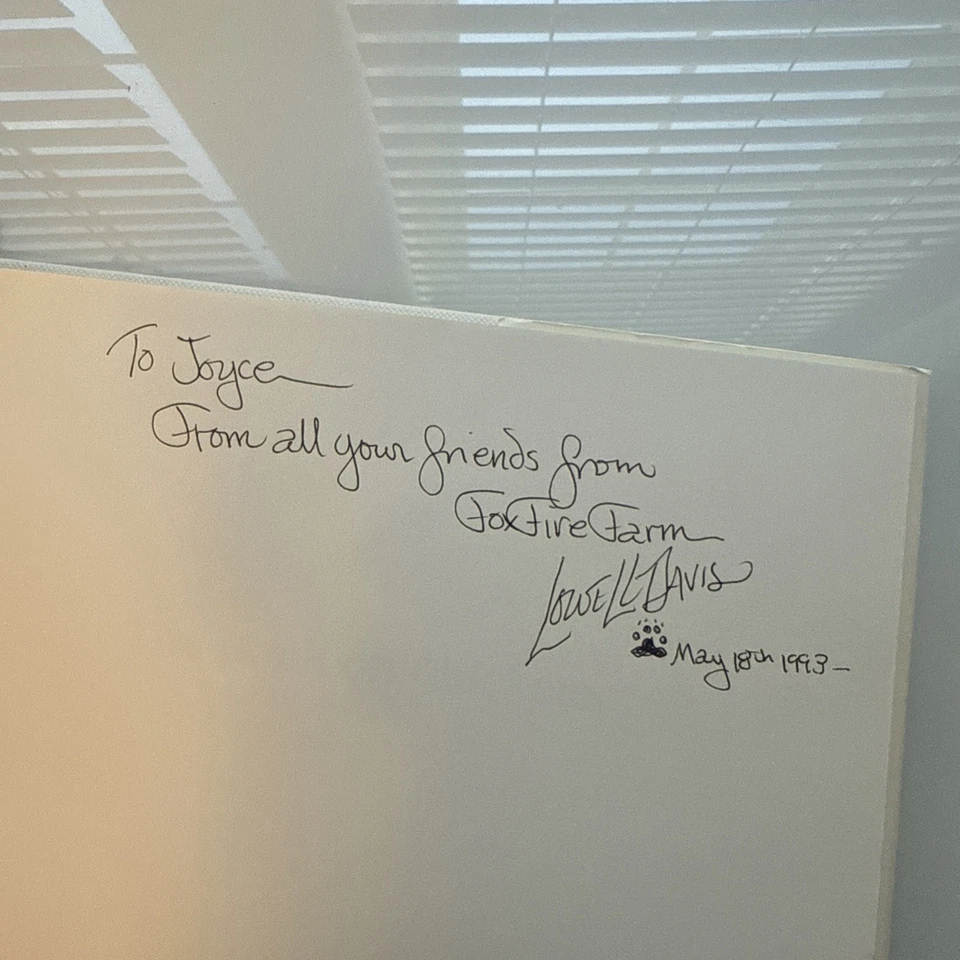 To Joyce
From all your friends from
FoxFire Farm
Lowell Davis
May 18th 1993 –